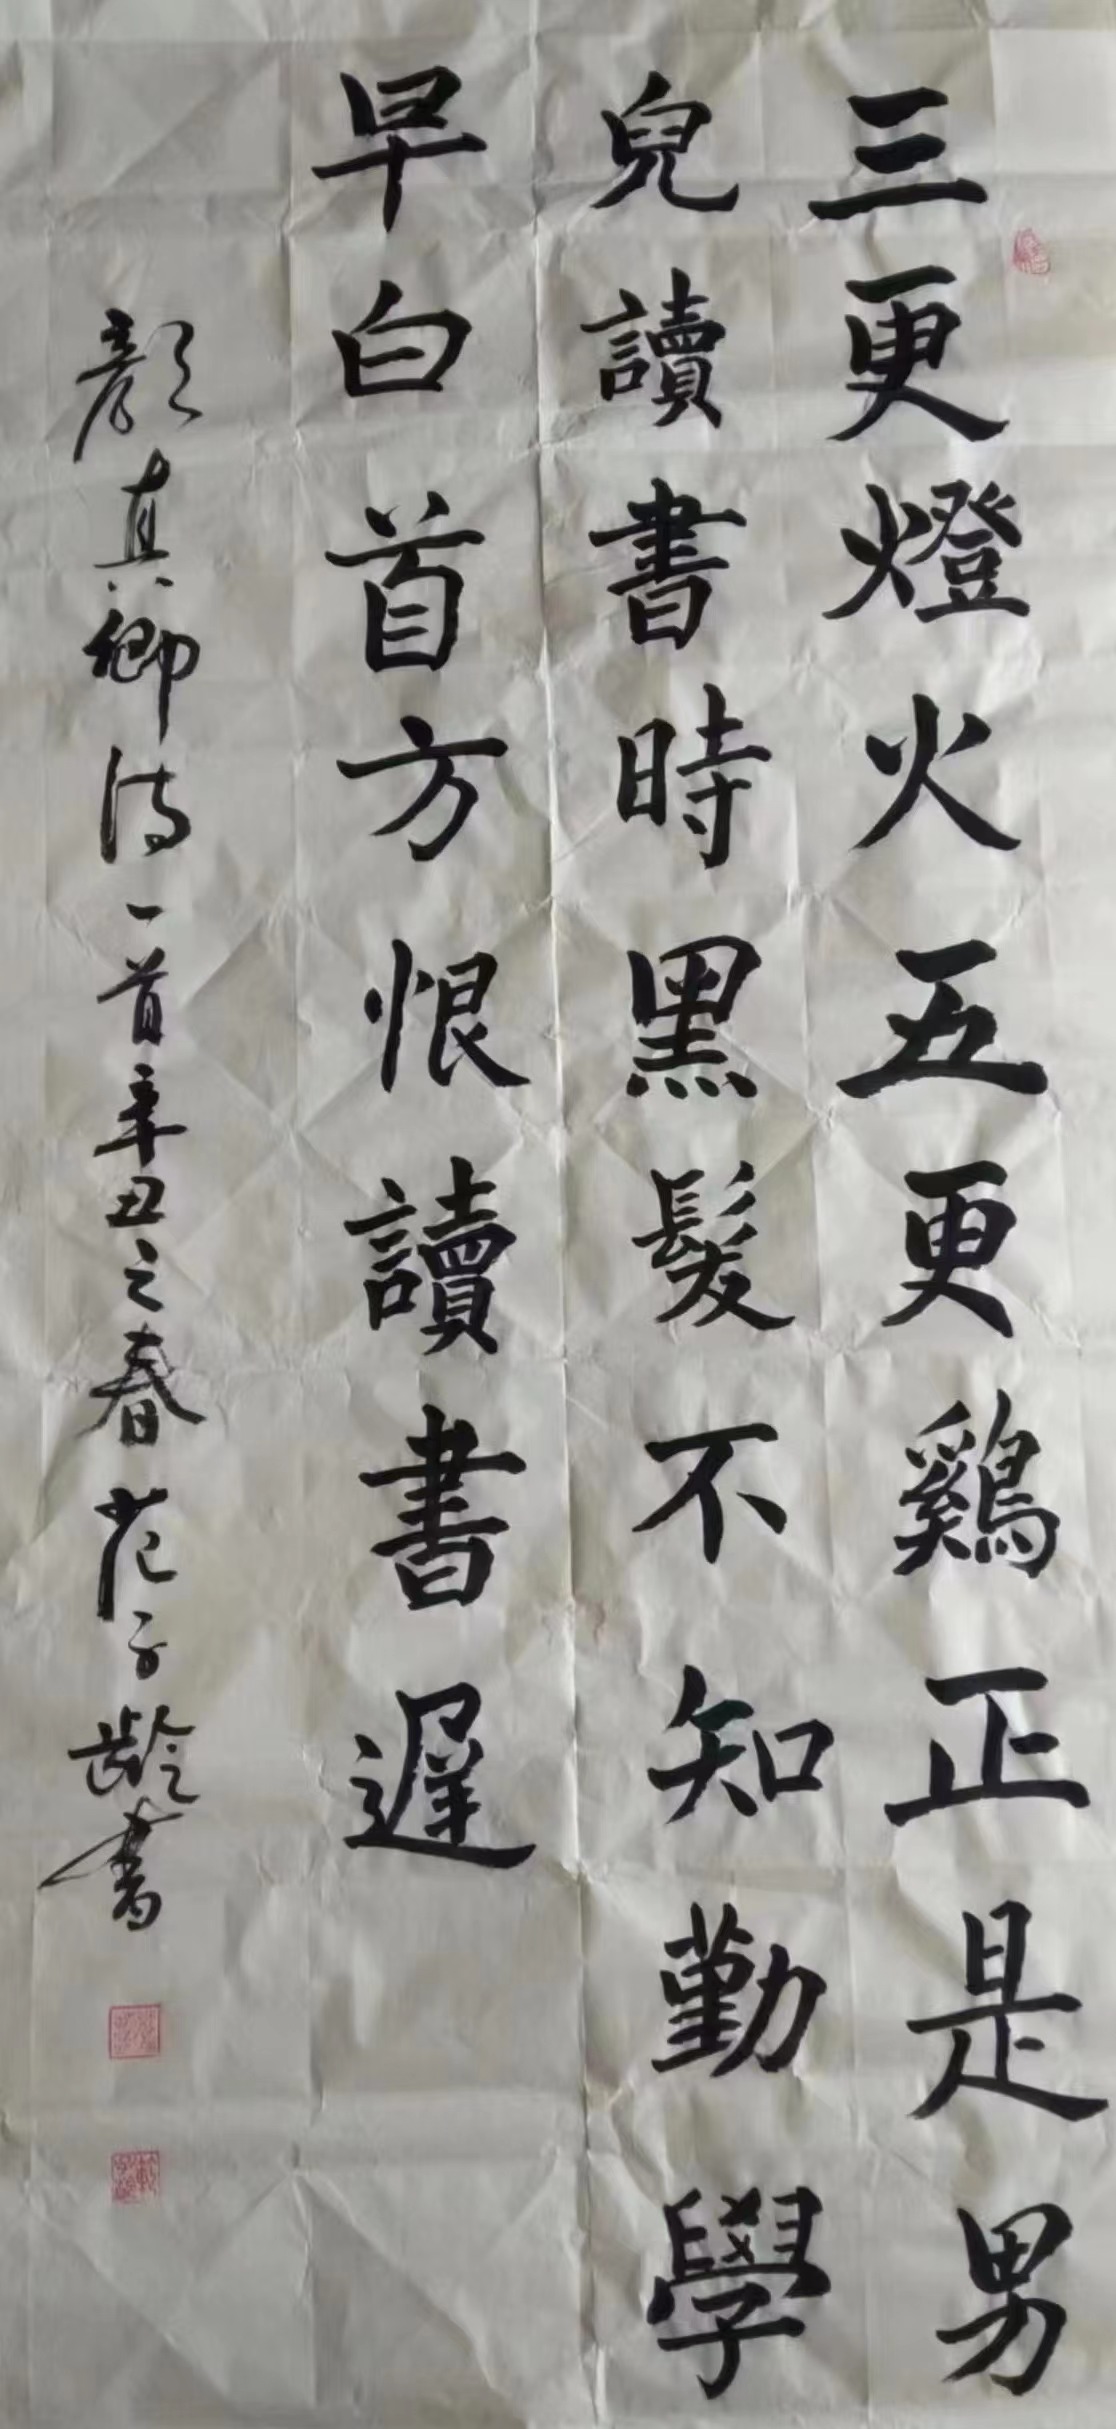 三更燈火五更鷄正是男
兒讀書時黑髮不知勤學
早白首方恨讀書遲
顔真卿诗一首辛丑之春范子齡書